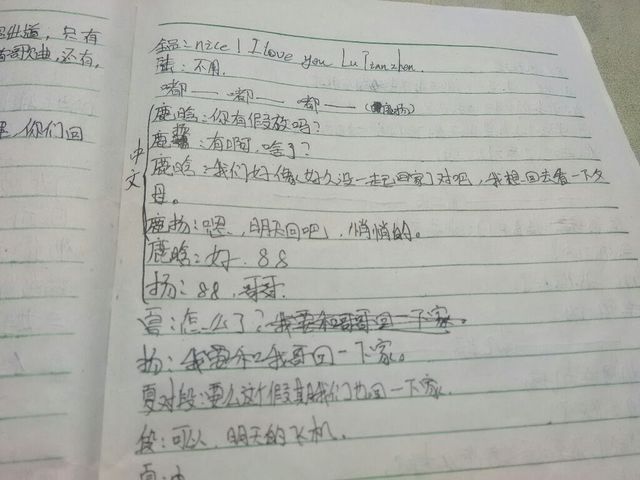 只有
歌曲,还有,
你们回
全员:nice! I love you Lu Tianzhen.
陆:不用.
嘟—— 嘟—— 嘟——
中文
鹿晗:你有假放吗?
鹿扬:有啊.啥了?
鹿晗:我们好像好久没一起回家了对吧,我想回去看一下父
母。
鹿扬:恩,明天回吧,悄悄的。
鹿晗:好.88
扬:88.哥哥.
夏:怎么了?我要和哥哥回一下家.
扬:我要和我哥回一下家。
夏对段:要么这个假期我们也回一下家.
段:可以,明天的飞机.